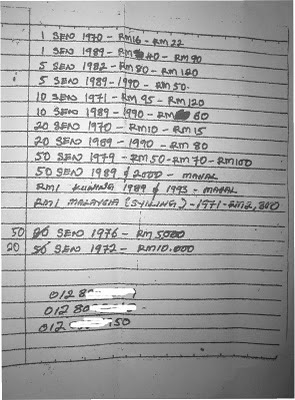 1 SEN 1970 - RM16 - RM22
1 SEN 1989 - RM 40 - RM 90
5 SEN 1982 - RM 80 - RM 120
5 SEN 1989 - 1990 - RM 50
10 SEN 1971 - RM 95 - RM 120
10 SEN 1989 - 1990 - RM 60
20 SEN 1970 - RM10 - RM 15
20 SEN 1989 - 1990 - RM 80
50 SEN 1979 - RM 50 - RM 70 - RM100
50 SEN 1989 & 2000 - MAHAL
RM1 KUNING 1989 & 1993 - MAHAL
RM1 MALAYSIA (SYILING) - 1971 - RM2,300
50 SEN 1976 - RM 5000
20 50 SEN 1972 - RM10.000
012 80
012 80
012 50